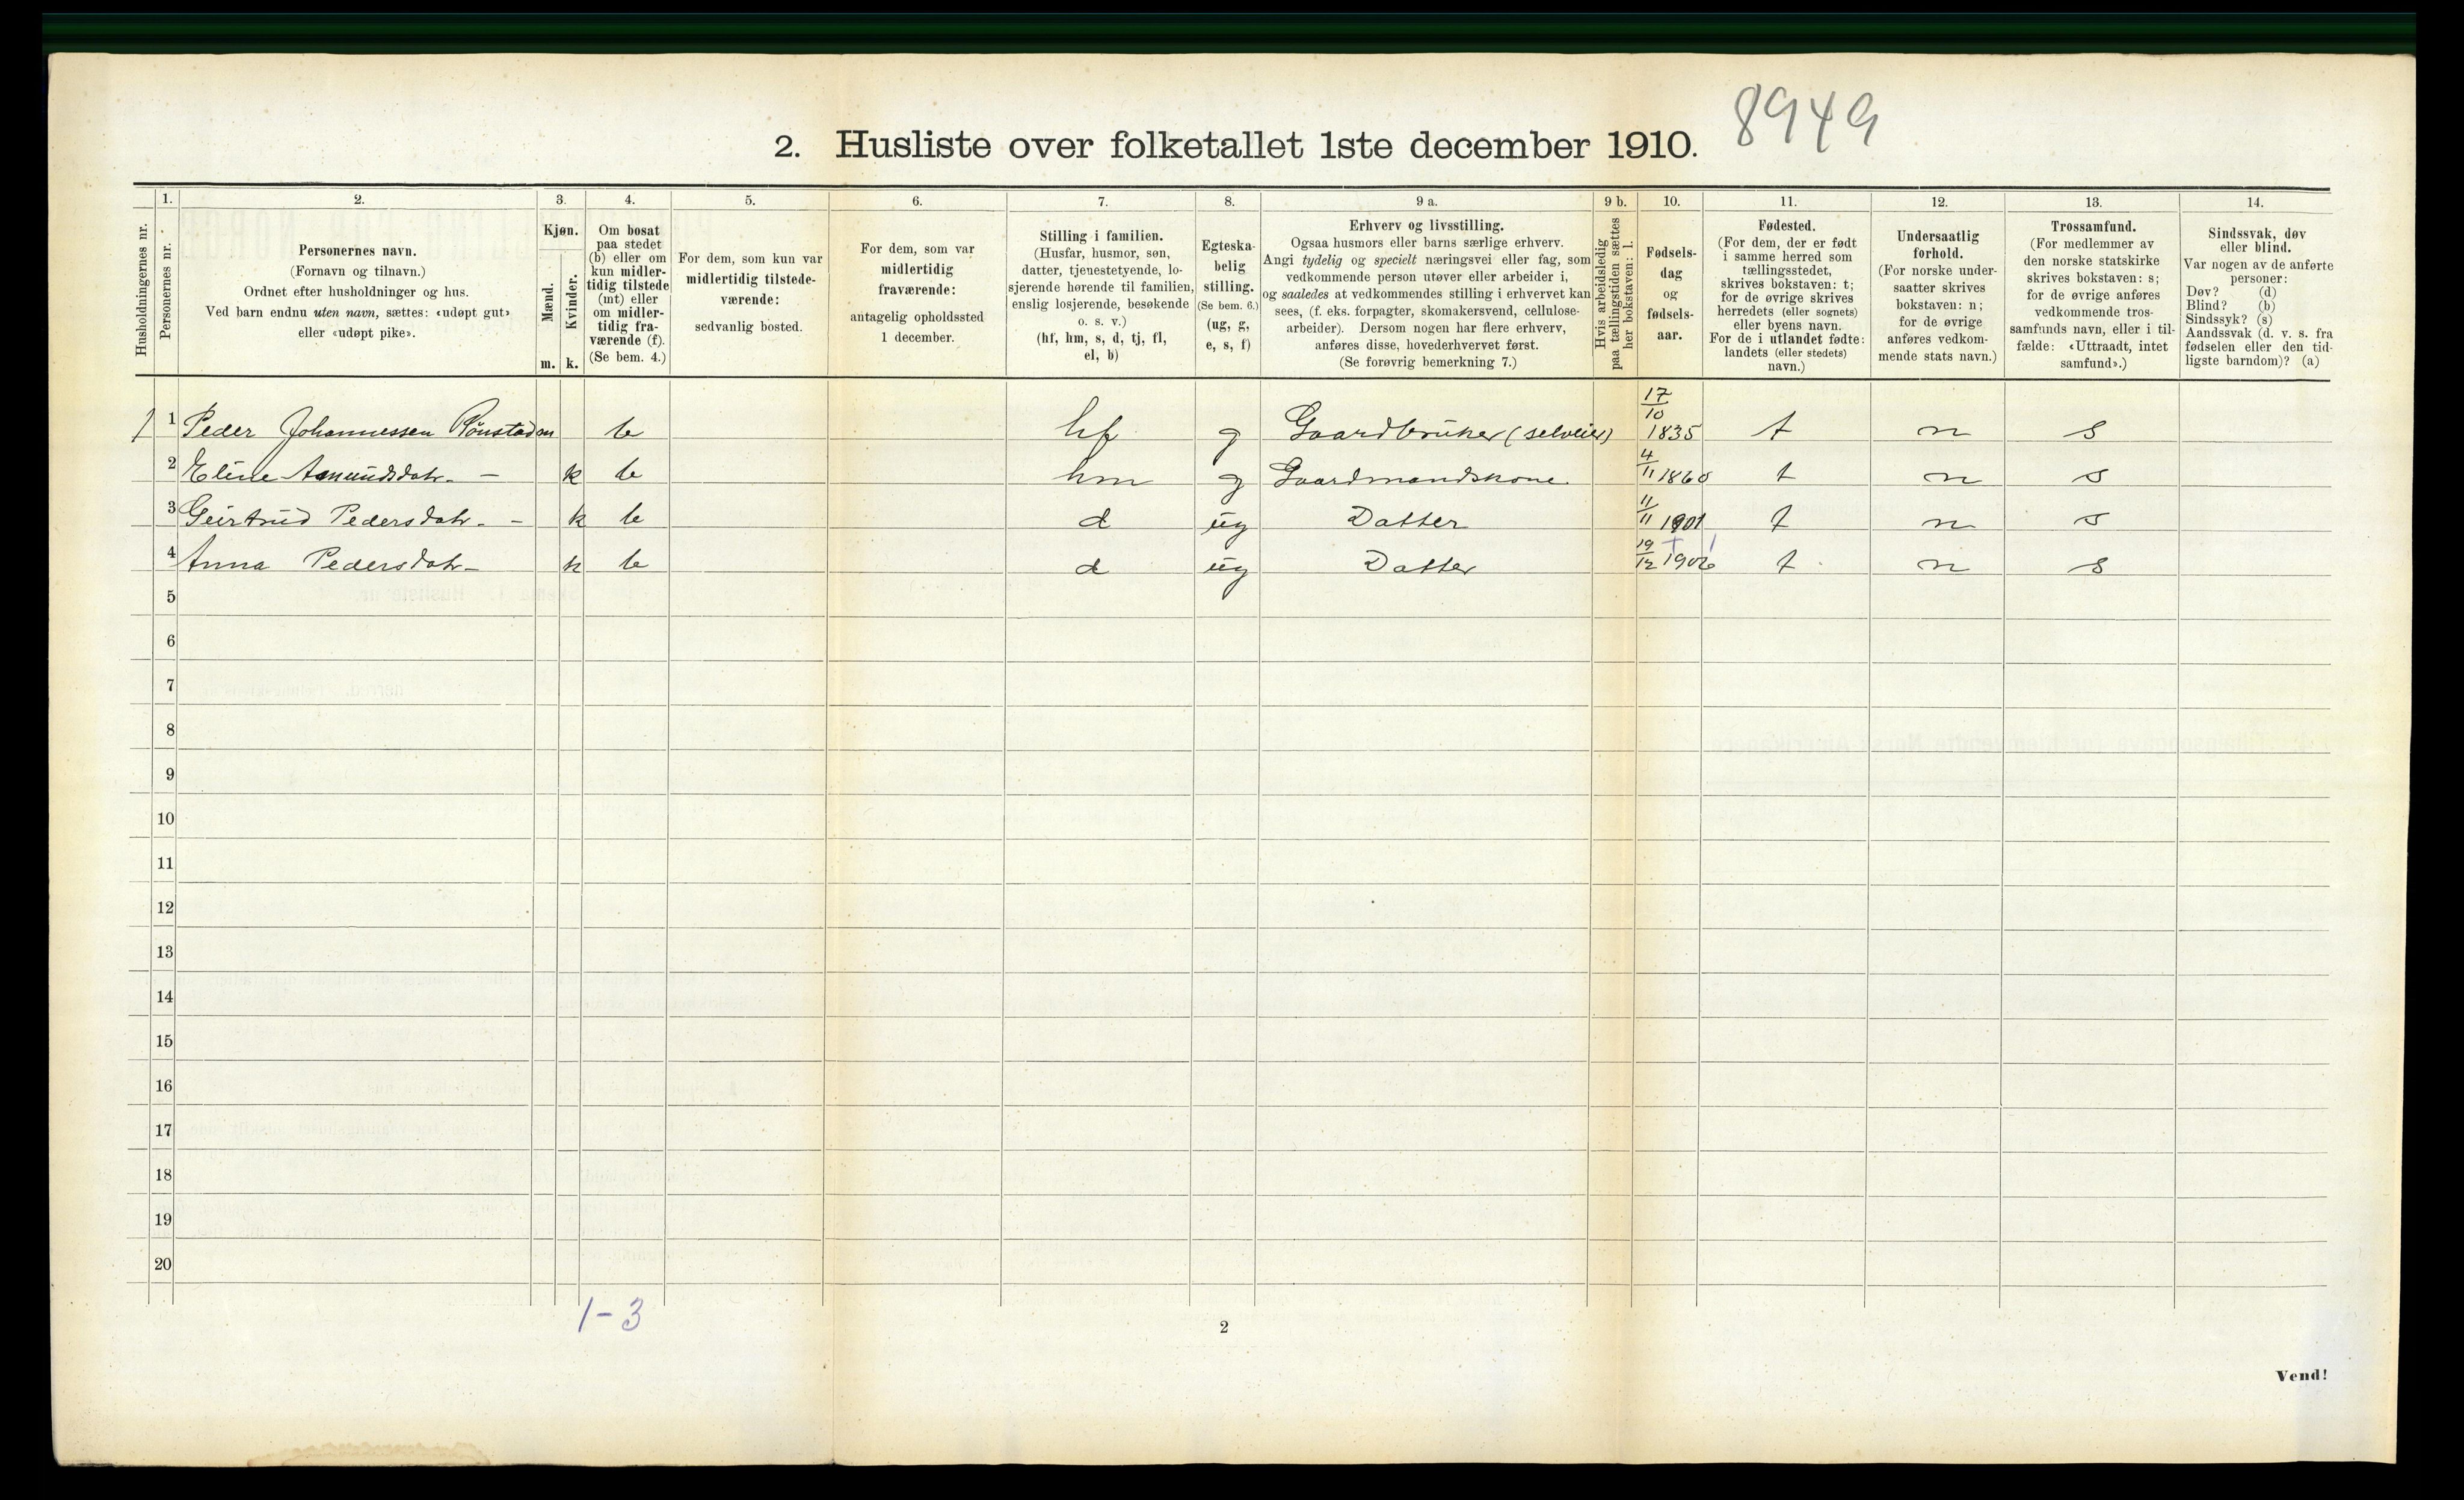 8949
2. Husliste over folketallet 1ste december 1910.
1. 2. 3. 4. 5. 6. 7. 8. 9 a. 9 b. 10. 11. 12. 13. 14.
Husholdningernes nr.
Personernes nr.
Personernes navn.
(Fornavn og tilnavn.)
Ordnet efter husholdninger og hus.
Ved barn endnu uten navn, sættes: «udøpt gut»
eller «udøpt pike».
Kjøn.
Mænd.
Kvinder.
m. k.
Om bosat
paa stedet
(b) eller om
kun midler-
tidig tilstede
(mt) eller
om midler-
tidig fra-
værende (f).
(Se bem. 4.)
For dem, som kun var
midlertidig tilstede-
værende:
sedvanlig bosted.
For dem, som var
midlertidig
fraværende:
antagelig opholdssted
1 december.
Stilling i familien.
(Husfar, husmor, søn,
datter, tjenestetyende, lo-
sjerende hørende til familien,
enslig losjerende, besøkende
o. s. v.)
(hf, hm, s, d, tj, fl,
el, b)
Egteska-
belig
stilling.
(Se bem. 6.)
(ug, g,
e, s, f)
Erhverv og livsstilling.
Ogsaa husmors eller barns særlige erhverv.
Angi tydelig og specielt næringsvei eller fag, som
vedkommende person utøver eller arbeider i,
og saaledes at vedkommendes stilling i erhvervet kan
sees, (f. eks. forpagter, skomakersvend, cellulose-
arbeider). Dersom nogen har flere erhverv,
anføres disse, hovederhvervet først.
(Se forøvrig bemerkning 7.)
Hvis arbeidsledig
paa tællingstiden sættes
her bokstaven: l.
Fødsels-
dag
og
fødsels-
aar.
Fødested.
(For dem, der er født
i samme herred som
tællingsstedet,
skrives bokstaven: t;
for de øvrige skrives
herredets (eller sognets)
eller byens navn.
For de i utlandet fødte:
landets (eller stedets)
navn.)
Undersaatlig
forhold.
(For norske under-
saatter skrives
bokstaven: n;
for de øvrige
anføres vedkom-
mende stats navn.)
Trossamfund.
(For medlemmer av
den norske statskirke
skrives bokstaven: s;
for de øvrige anføres
vedkommende tros-
samfunds navn, eller i til-
fælde: «Uttraadt, intet
samfund».)
Sindssvak, døv
eller blind.
Var nogen av de anførte
personer:
Døv? (d)
Blind? (b)
Sindssyk? (s)
Aandssvak (d. v. s. fra
fødselen eller den tid-
ligste barndom)? (a)
1 1 Peder Johannessen Rønstad m b hf g Gaardbruker (selveier) 17/10 1835 t n s
2 Eline Amundsdatr. - k b hm g Gaardmandskone. 4/11 1860 t n s
3 Geirtrud Pedersdatr. - k b d ug Datter 11/11 1901 t n s
4 Anna Pedersdatr - k b d ug Datter 19/12 1906 t n s
5
6
7
8
9
10
11
12
13
14
15
16
17
18
19
20
1-3
2
Vend!